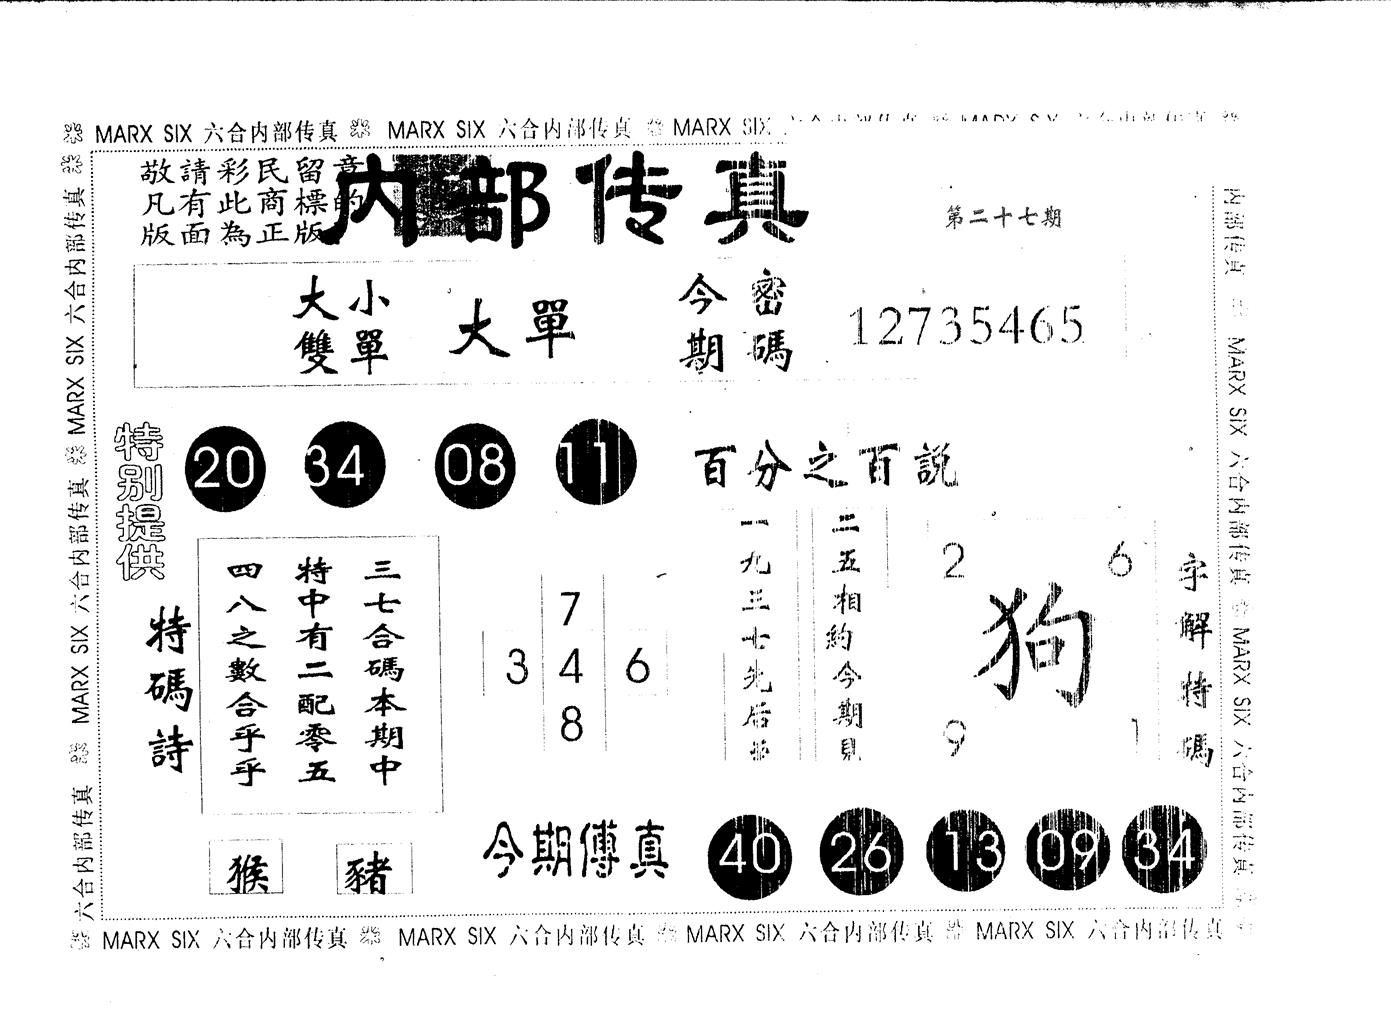 MARX SIX 六合内部传真 MARX SIX 六合内部传真 MARX SIX
敬請彩民留意
凡有此商標的
版面為正版
内部传真
第二十七期
大小
雙單
大單
今期
密碼
12735465
特别提供
20 34 08 11
百分之百説
特碼詩
三七合碼本期中
特中有二配零五
四八之數合乎乎
7
3 4 6
8
二五相約今期見
一九三七先后
2 6
狗
9 1
字解特碼
猴 豬
今期傳真
40 26 13 09 34
MARX SIX 六合内部传真 MARX SIX 六合内部传真 MARX SIX 六合内部传真 MARX SIX 六合内部传真
六合内部传真 MARX SIX 六合内部传真 MARX SIX 六合内部传真
内部传真 MARX SIX 六合内部传真 MARX SIX 六合内部传真